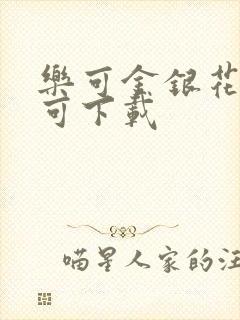 樂可金銀花
可下載
喵星人家的汪